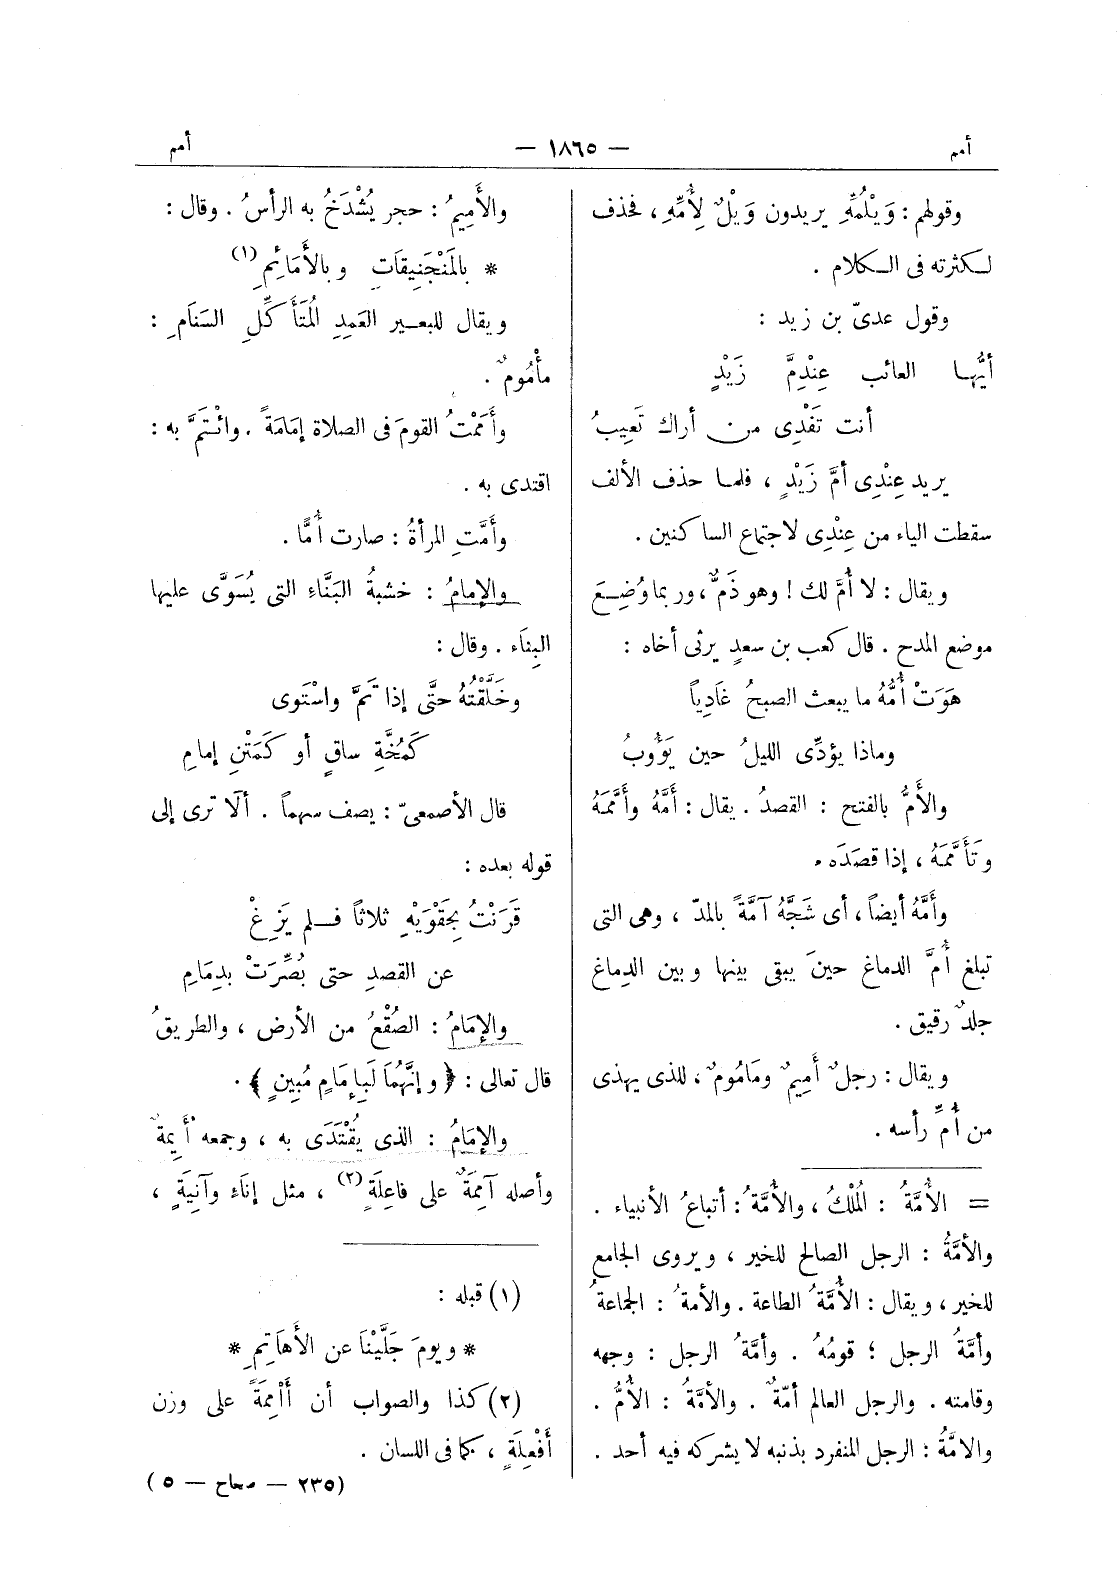 أمم
— ١٨٦٥ —
أمم
وقولهم : وَيْلُمِّهِ يريدون وَيْلٌ لِأُمِّهِ ، فحذف
لكثرته فى الكلام .
وقول عدىّ بن زيد :
أيُّها العائب عِنْدِمَّ زَيْدٍ
أنت تَفْدِى من أراك تَعِيبُ
يريد عِنْدِى أمَّ زَيْدٍ ، فلما حذف الألف
سقطت الياء من عِنْدِى لاجتماع الساكنين .
ويقال : لا أُمَّ لك ! وهو ذَمٌّ ، وربما وُضِعَ
موضع المدح . قال كعب بن سعدٍ يرثى أخاه :
هَوَتْ أُمُّهُ ما يبعث الصبحُ غَادِياً
وماذا يؤدِّى الليلُ حين يَؤُوبُ
والأَمُّ بالفتح : القصدُ . يقال : أَمَّهُ وأَمَّمَهُ
وتَأَمَّمَهُ ، إذا قصَدَه .
وأَمَّهُ أيضاً ، أى شَجَّهُ آمَّةً بالمدّ ، وهى التى
تبلغ أُمَّ الدماغ حينَ يبقى بينها وبين الدِماغ
جلدٌ رقيق .
ويقال : رجلٌ أَمِيمٌ ومَامُومٌ ، للذى يهذى
من أُمِّ رأسه .
= الأُمَّةُ : المُلْكُ ، والأُمَّةُ : أتباعُ الأنبياء .
والأمَّةُ : الرجل الصالح للخير ، ويروى الجامع
للخير ، ويقال : الأُمَّةُ الطاعة . والأمةُ : الجماعةُ
وأمَّةُ الرجل ؛ قومُهُ . وأمَّةُ الرجل : وجهه
وقامته . والرجل العالم أمّةٌ . والأمَّةُ : الأُمُّ .
والامَّةُ : الرجل المنفرد بذنبه لا يشركه فيه أحد .
والأَمِيمُ : حجر يُشْدَخُ به الرأسُ . وقال :
* بالمَنْجَنِيقَاتِ وبالأَمَائِمِ (١)
ويقال للبعير العَمِدِ المُتَأَكِّلِ السَنَامِ :
مأْمُومٌ .
وأَمَمْتُ القومَ فى الصلاة إِمَامَةً . وائْتَمَّ به :
اقتدى به .
وأَمَّتِ المرأةُ : صارت أُمًّا .
والإمامُ : خشبةُ البَنَّاءِ التى يُسَوَّى عليها
البِنَاء . وقال :
وخَلَّقْتُهُ حتَّى إذا تَمَّ واسْتَوى
كَمُخَّةِ ساقٍ أو كَمَتْنِ إمامِ
قال الأصمعىّ : يصف سهماً . ألَا ترى إلى
قوله بعده :
قَرَنْتُ بِحَقْوَيْهِ ثلاثاً فلم يَزِغْ
عن القصدِ حتى بُصِّرَتْ بدِمَامِ
والإمَامُ : الصُقْعُ من الأرض ، والطريقُ
قال تعالى : ﴿ وإنَّهُمَا لَبِإِمَامٍ مُبِينٍ ﴾ .
والإمَامُ : الذى يُقْتَدَى به ، وجمعه أَيِمةٌ
وأصله آمِمَةٌ على فاعِلَةٍ (٢) ، مثل إنَاء وآنِيَةٍ ،
(١) قبله :
* ويومَ جَلَّيْنَا عن الأَهاتِمِ *
(٢) كذا والصواب أن أَأْمِمَةً على وزن
أَفْعِلَةٍ ، كما فى اللسان .
(٢٣٥ — صحاح — ٥ )